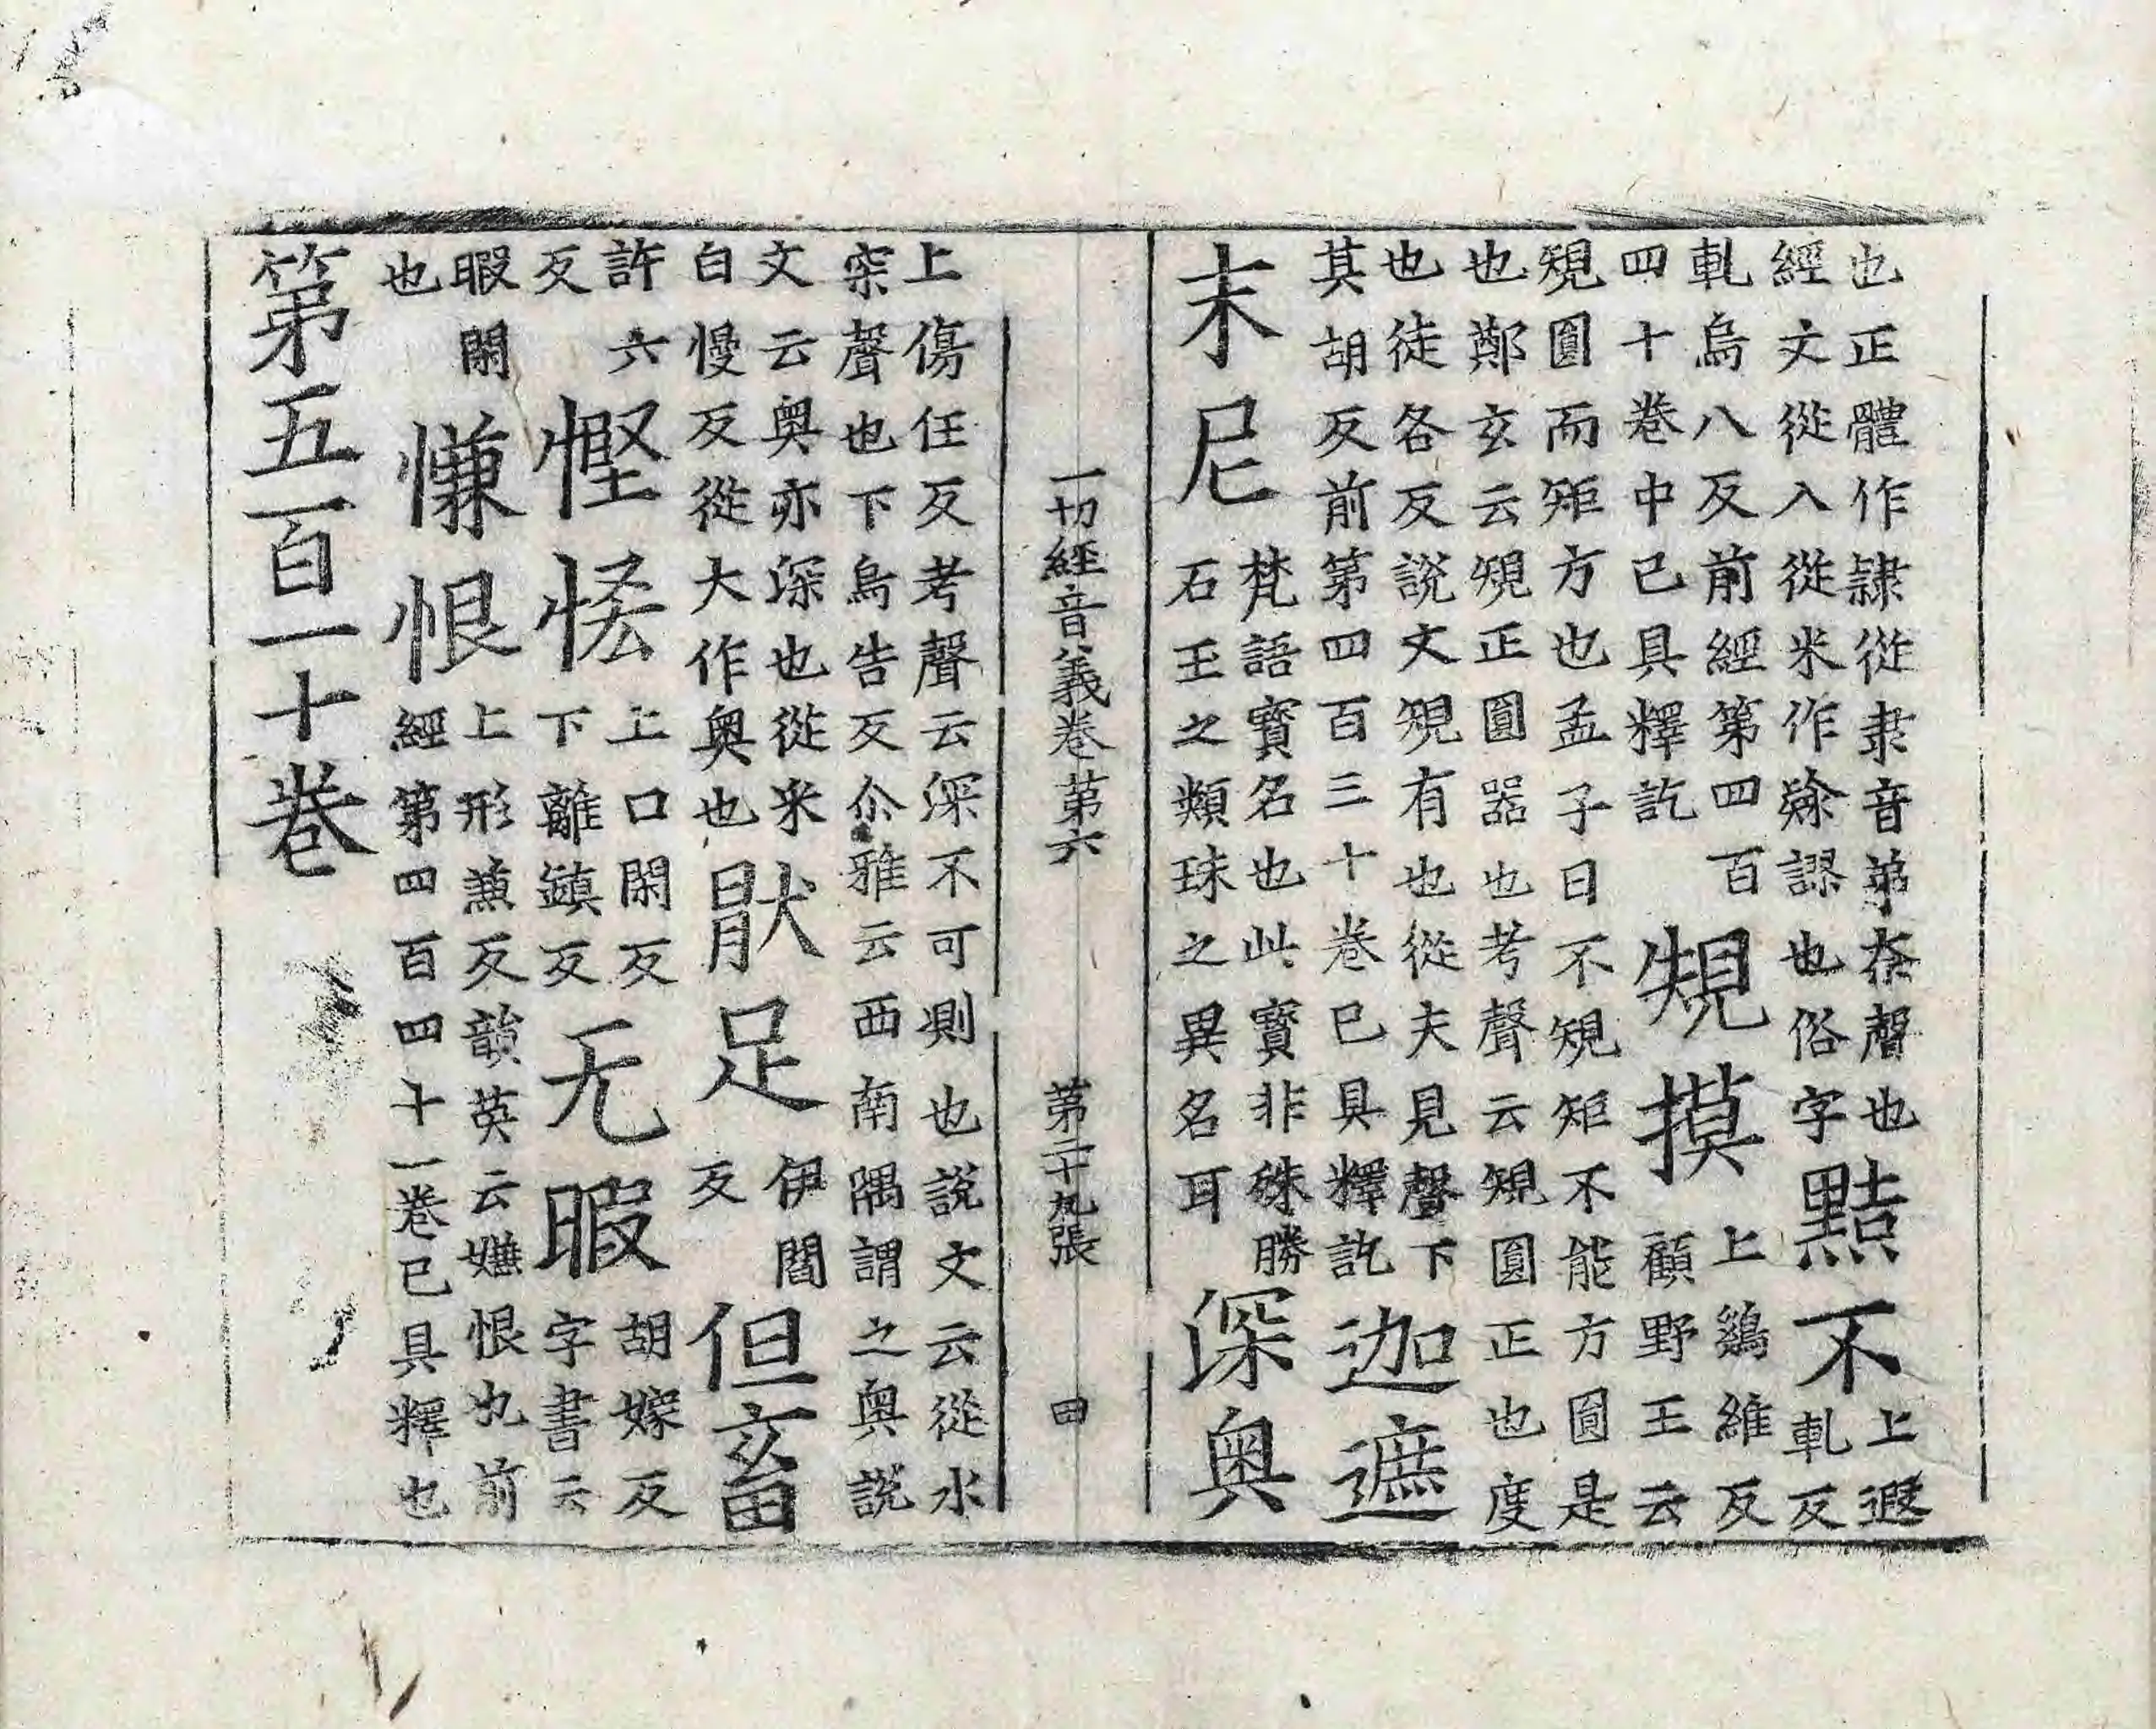 也正體作隷從隶音弟柰聲也　上遐
經文從入從米作𥻦謬也俗字　黠不　軋反
軋烏八反前經第四百　上鷄維反
四十卷中已具釋訖　䂓摸　顧野王云
䂓圓而矩方也孟子曰不䂓矩不能方圎是
也鄭玄云䂓正圓器也考聲云䂓圓正也度
也徒各反說文䂓有也從夫見聲下
其胡反前第四百三十卷已具釋訖　迦遮
末尼　梵語寳名也此寳非殊勝
石王之類珠之異名耳　深奥
一切經音義卷第六　第二十九張　田
上傷任反考聲云深不可測也說文云從水
罙聲也下烏告反尒雅云西南隅謂之奥說
文云奥亦深也從釆　伊閻
白慢反從大作奥也　猒足　反　但畜
許六　上口閑反　胡嫁反
反　慳悋　下離鎮反　无暇　字書云
暇閑　上形蒹反韻英云嫌恨也前
也　慊恨　經第四百四十一卷已具釋也
第五百一十卷